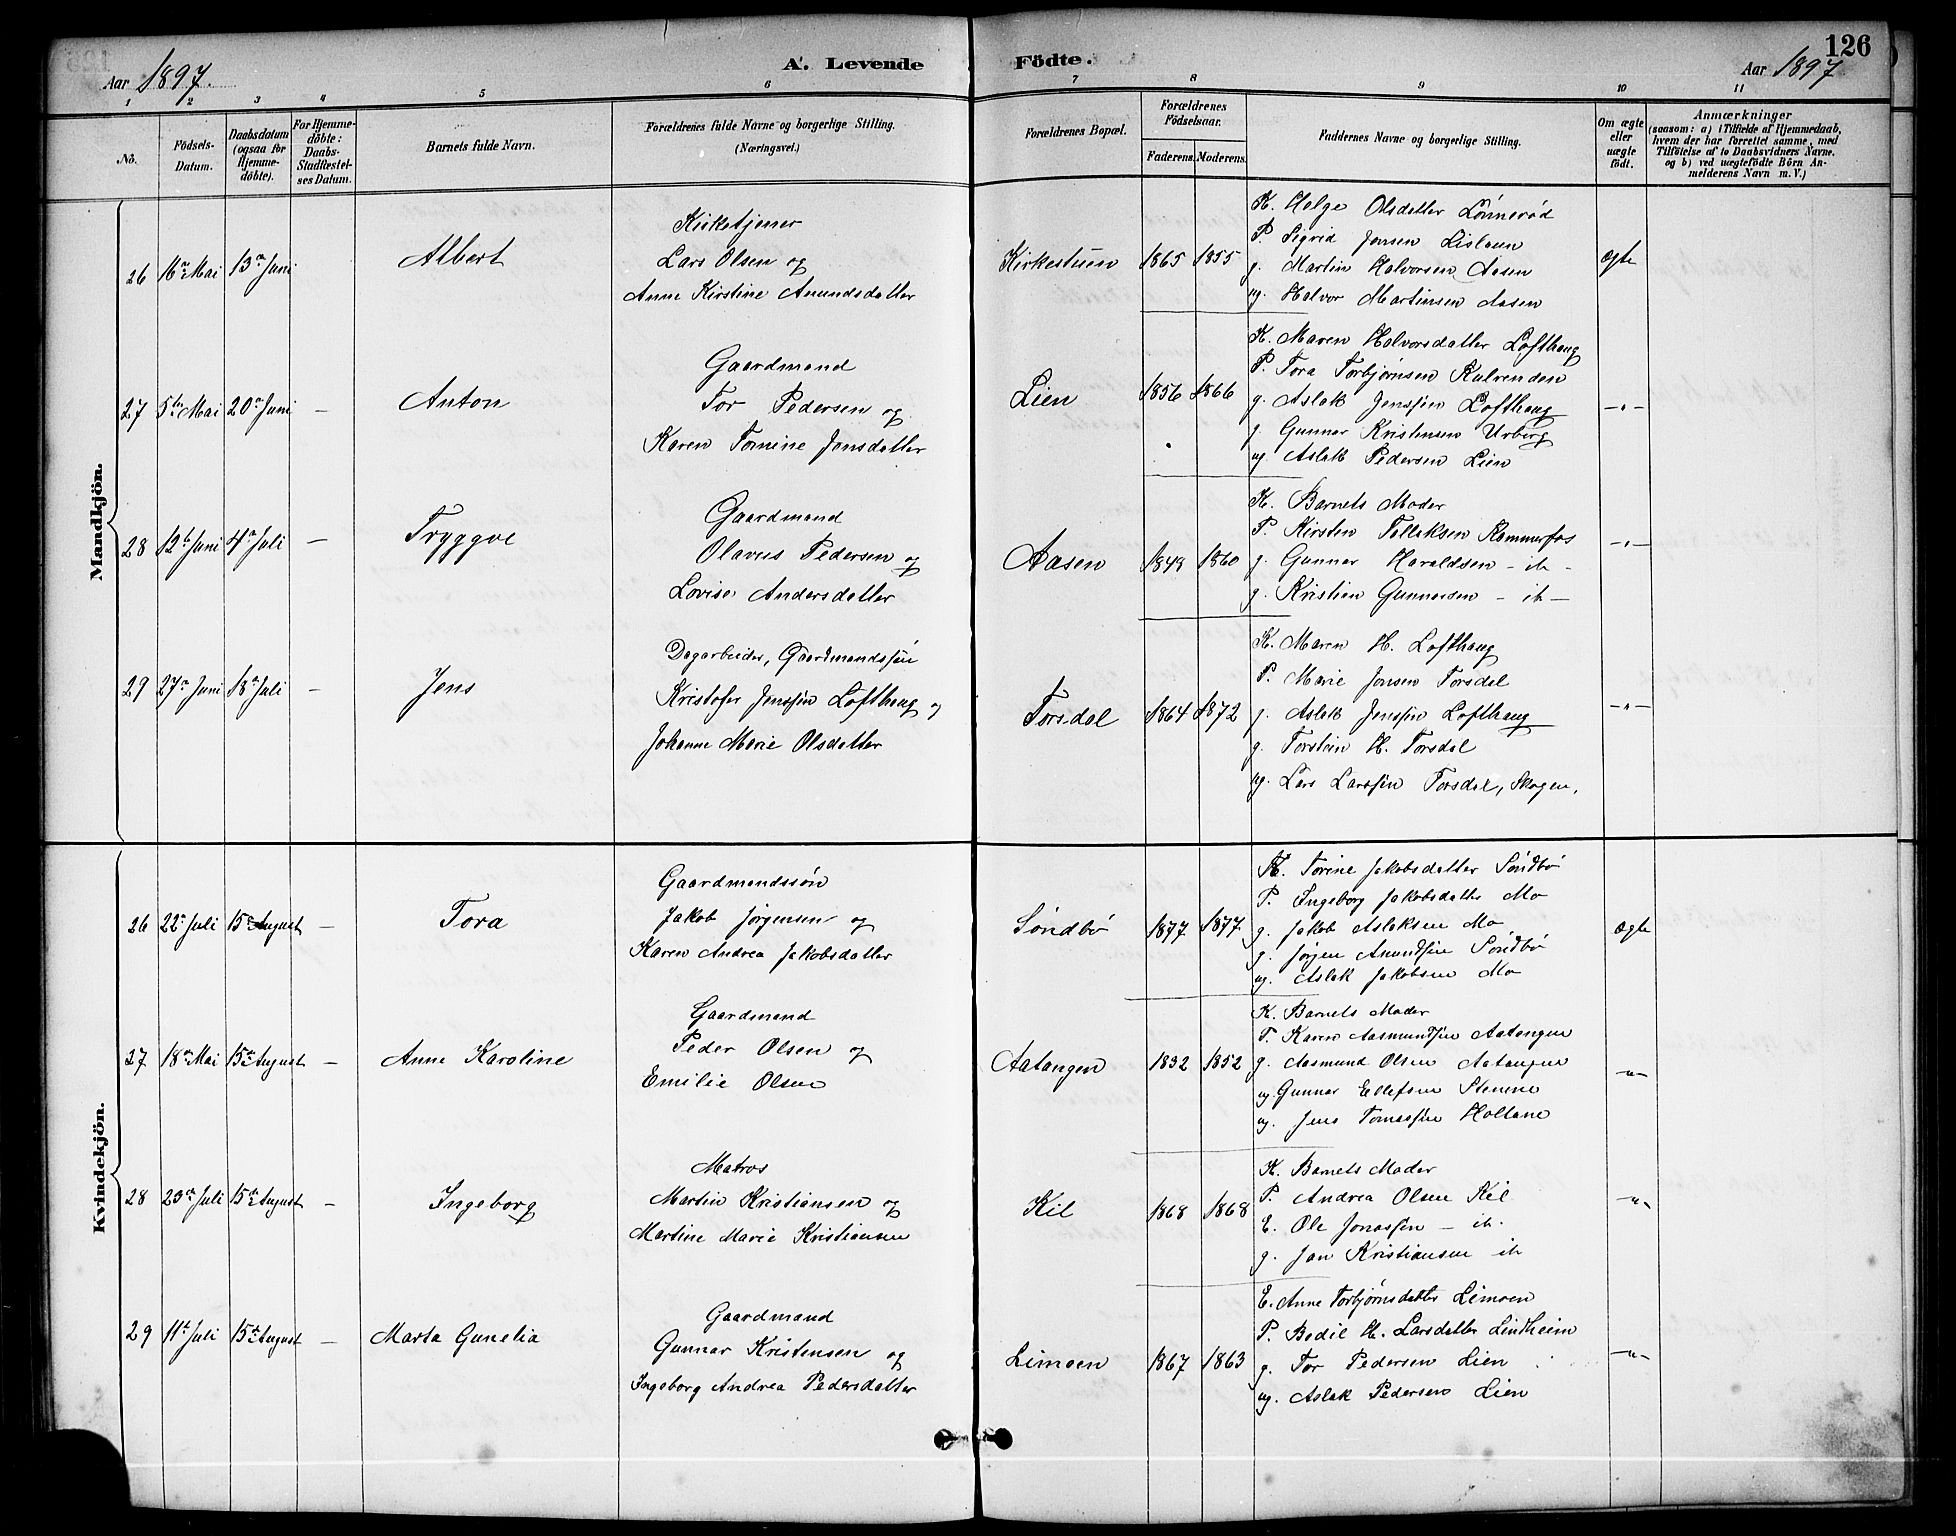 126
Aar 1897. A. Levende Födte. Aar 1897
1 2 3 4 5 6 7 8 9 10 11
No.
Födsels-
Datum.
Daabsdatum
(ogsaa for
Hjemme-
döbte).
For Hjemme-
döbte:
Daabs-
Stadfestel-
ses Datum.
Barnets fulde Navn.
Forældrenes fulde Navne og borgerlige Stilling.
(Næringsvei.)
Forældrenes Bopæl.
Forældrenes
Födselsaar.
Faderens. Moderens.
Faddernes Navne og borgerlige Stilling.
Om ægte
eller
uægte
födt.
Anmærkninger
(saasom: a) i Tilfelde af Hjemmedaab,
hvem der har forrettet samme, med
Tilföielse af to Daabsvidners Navne.
og b) ved uægtefödte Börn An-
melderens Navn m. V.)
Mandkjön.
26 16de Mai 13de Juni
Albert
Kirketjener
Lars Olsen og
Anne Kirstine Amundsdatter
Kirkestuen 1865 1855
K. Helge Olsdatter Lönneröd
P. Sigrid Jensen Lislaun
g. Martin Halvorsen Aasen
ug. Halvor Martinsen Aasen
Ægte
27 5te Mai 20de Juni –
Anton
Gaardmand
Tor Pedersen og
Karen Tomine Jensdatter
Lien 1856 1866
K. Maren Halvorsdatter Lofthaug
P. Tora Torbjørnsen Kulrenden
g. Aslak Jenssøn Lofthaug
g. Gunnar Kristensen Urberg
ug. Aslak Pedersen Lien
–"–
28 12te Juni 4de Juli –
Tryggve
Gaardmand
Olaves Pedersen og
Lovise Andersdatter
Aasen 1849 1860
K. Barnets Moder
P. Kirsten Tellaksen Rammerfos
g. Gunnar Haraldsen – ib –
g. Kristian Gunnarsen – ib –
–"–
29 27de Juni 18de Juli –
Jens
Dagarbeider, Gaardmandssøn
Kristofer Jenssøn Lofthaug og
Johanne Marie Olsdatter
Torsdal 1864 1872
K. Maren H. Lofthaug
P. Marie Jensen Torsdal
g. Aslak Jenssøn Lofthaug
g. Torstein H. Torsdal
ug. Lars Larssøn Torsdal, Skogen,
–"–
Kvindekjön.
26 22de Juli 15de August –
Tora
Gaardmandssön
Jakob Jørgensen og
Karen Andrea Jakobsdatter
Söndbö 1877 1877
K. Torine Jakobsdatter Söndbö
P. Ingeborg Jakobsdatter Mo
g. Jakob Aslaksen Mo
g. Jørgen Amundsøn Söndbö
ug. Aslak Jakobsen Mo
Ægte
27 18de Mai 15de August –
Anne Karoline
Gaardmand
Peder Olsen og
Emilie Olsen
Aatangen 1832 1852
K. Barnets Moder
P. Karen Aasmundsøn Aatangen
g. Aasmund Olsen Aatangen
ug. Gunnar Ellefsen Stenene
ug. Jens Tomassøn Holtane
–"–
28 23de Juli 15de August –
Ingeborg
Matros
Martin Kristiansen og
Martine Marie Kristiansen
Kil 1868 1868
K. Barnets Moder
P. Andrea Olsen Kil
E. Ole Jonassøn – ib.
g. Jan Kristiansen ib
–"–
29 11te Juli 15de August –
Marta Gunelia
Gaardmand
Gunnar Kristensen og
Ingeborg Andrea Pedersdatter
Limoen 1867 1863
E. Anne Torbjørnsdatter Limoen
P. Bodil H. Larsdatter Lindheim
g. Tor Pedersen Lien
ug. Aslak Pedersen Lien
–"–